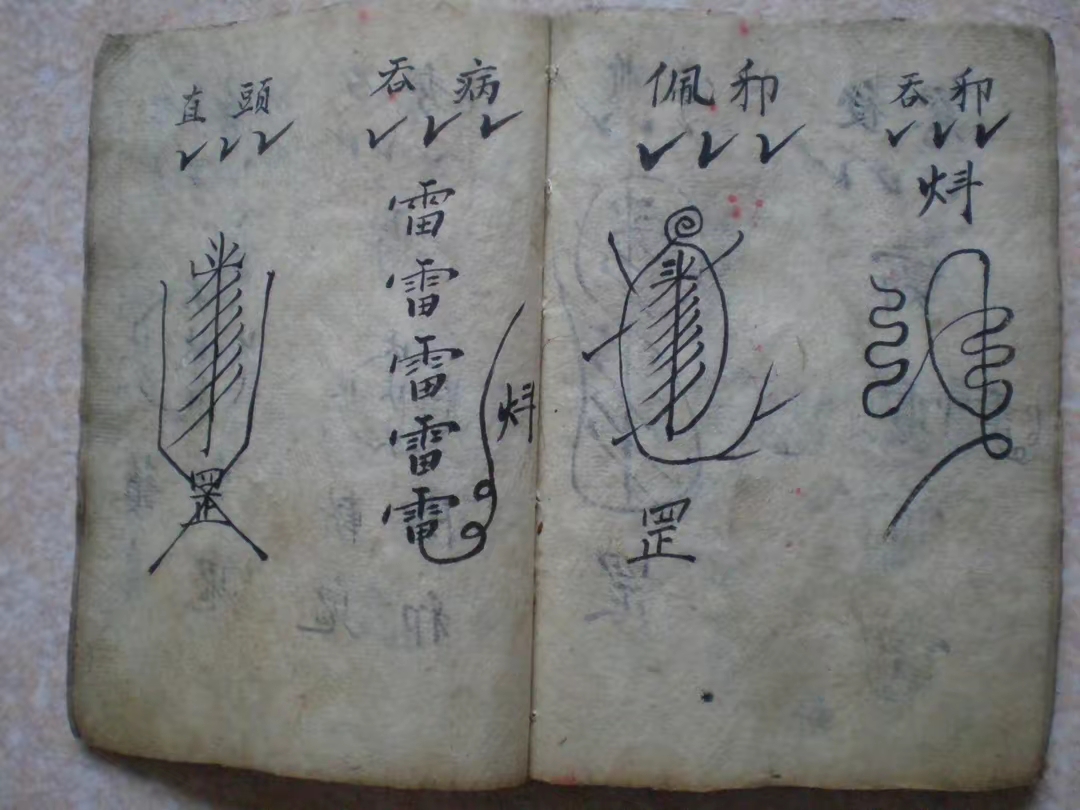 吞邪
炓
佩邪
罡
吞病
雷
雷
雷
雷
雷
炓
直頭
罡